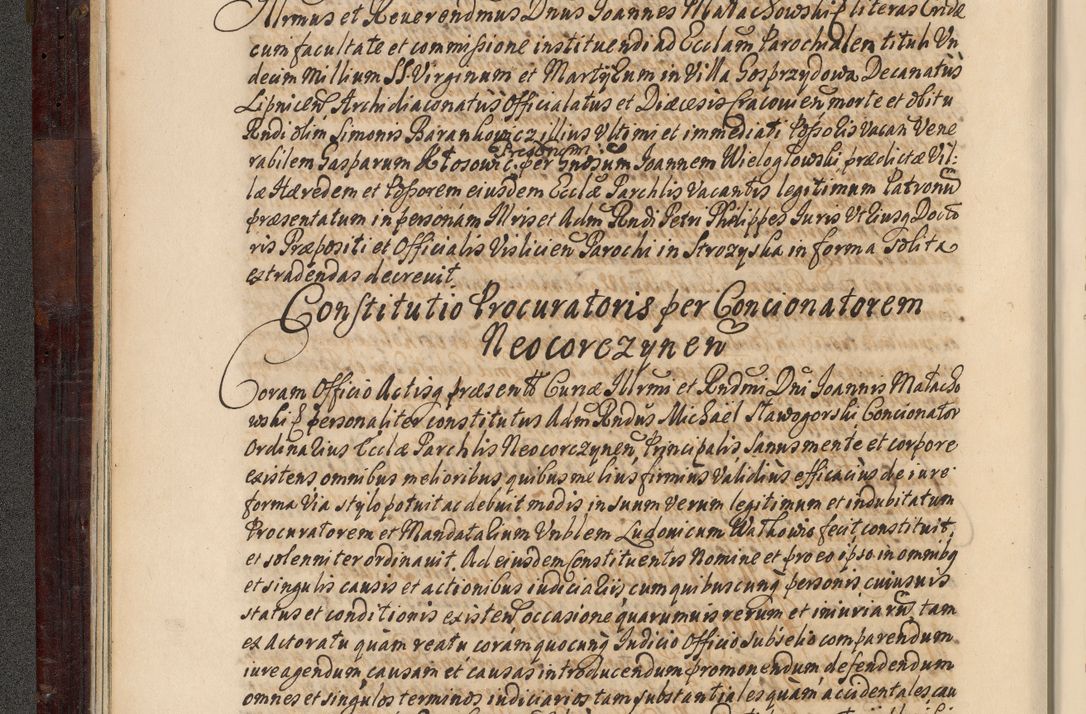 Illrmus et Reverendmus Dnus Joannes Małachowski E literas Cridæ
cum facultate et commissione instituendi ad Ecclam Parochialem tituli Vn
decim Millium SS Virginum et Martyrum in Villa Gosprzydowa Decanatus
Lipnicen Archidiaconatus Officialatus et Diæcesis Cracovien morte et obitu
Rndi olim Simonis Barankowicz illius Vltimi et immediati Possoris vacan Vene
rabilem Gasparum Kłosowic per Gnosum Joannem Wielogłowski prædictæ Vil:
læ Hæredem et Possorem eiusdem Ecclæ Parchlis Vacantis legitimum Patronū
præsentatum in personam Illris et Adm Rndi Petri Philippes Juris Vtriusq Docto
ris Præpositi et Officialis Vislicien Parochi in Strozyska in forma solita
extradendas decrevit.
Constitutio Procuratoris per Concionatorem
Neocorczynen
Coram Officio Actisq præsentt Curiæ Illrmi et Rndmi Dni Joannis Małacho
wski E personaliter constitutus Adm Rndus Michaël Stawogorski Concionator
Ordinarius Ecclæ Parchlis Neocorczynen, Principalis sanus mente et corpore
existens omnibus melioribus quibus melius firmius validius efficacius de iure
forma via stylo potuit ac debuit modis in suum verum legitimum et indubitatum
Procuratorem et Mandatarium Vnblem Ludovicum Wałkowic fecit constituit,
et solenniter ordinavit. Ad eiusdem Constituentis Nomine et pro eo ipso in omnibq
et singulis causis et actionibus iudiciariis cum quibuscunq personis cuiusvis
status et conditionis existen occasione quarumvis rerum et iniuriarū, tam
ex Actoratu quàm reatu coram quocunq Judicio Officio Subselio comparendum
iure agendum causam et causas introducendum promonendum defendendum
omnes et singulos terminos iudiciarios tam substantiales quàm accidentales cau